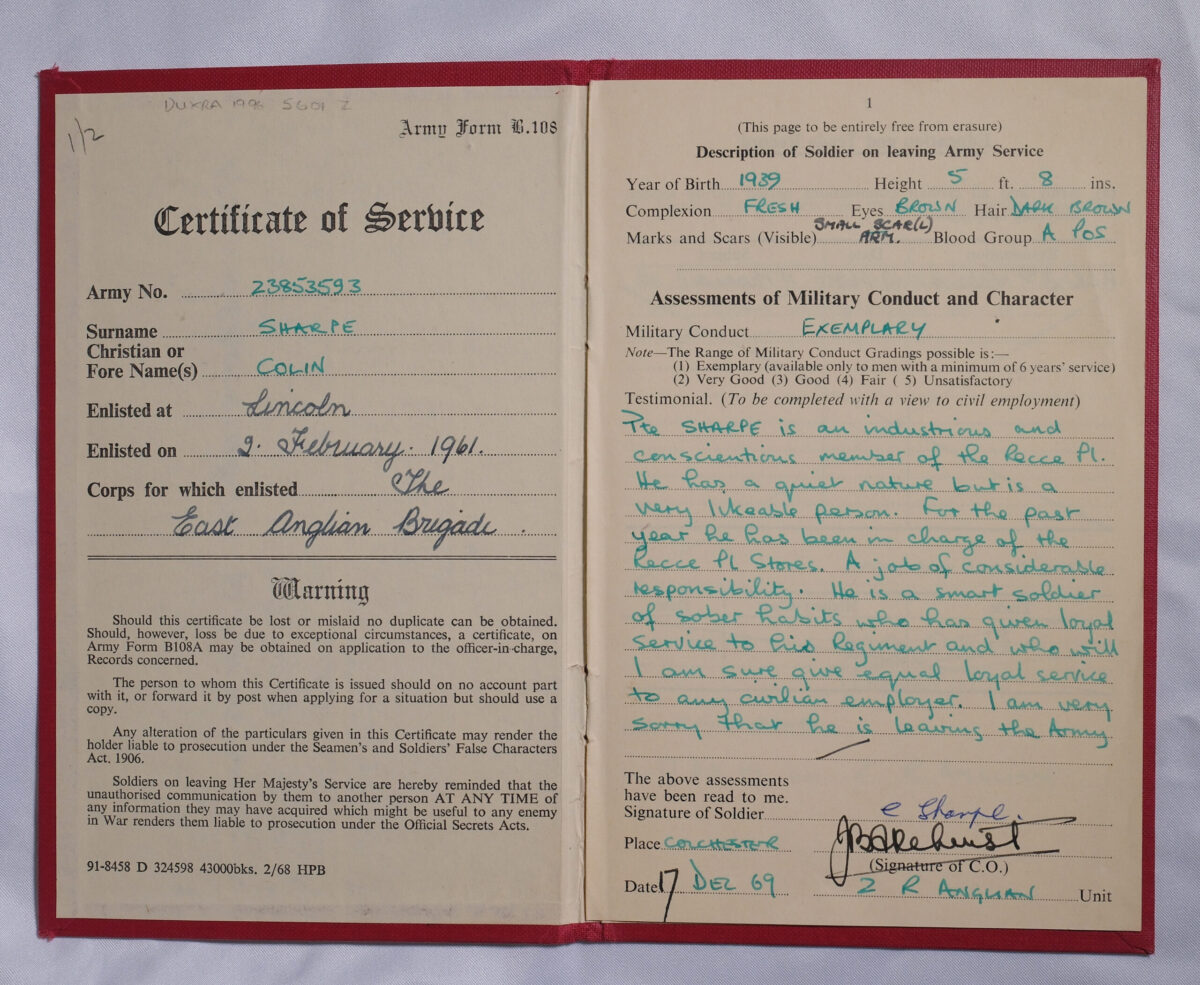 DUXRA 1996 5601 2
1/2
Army Form B.108
Certificate of Service
Army No. 23853593
Surname SHARPE
Christian or
Fore Name(s) COLIN
Enlisted at Lincoln
Enlisted on 2. February. 1961.
Corps for which enlisted The
East Anglian Brigade.
Warning
Should this certificate be lost or mislaid no duplicate can be obtained.
Should, however, loss be due to exceptional circumstances, a certificate, on
Army Form B108A may be obtained on application to the officer-in-charge,
Records concerned.
The person to whom this Certificate is issued should on no account part
with it, or forward it by post when applying for a situation but should use a
copy.
Any alteration of the particulars given in this Certificate may render the
holder liable to prosecution under the Seamen's and Soldiers' False Characters
Act. 1906.
Soldiers on leaving Her Majesty's Service are hereby reminded that the
unauthorised communication by them to another person AT ANY TIME of
any information they may have acquired which might be useful to any enemy
in War renders them liable to prosecution under the Official Secrets Acts.
91-8458 D 324598 43000bks. 2/68 HPB
1
(This page to be entirely free from erasure)
Description of Soldier on leaving Army Service
Year of Birth 1939 Height 5 ft. 8 ins.
Complexion FRESH Eyes BROWN Hair DARK BROWN
Marks and Scars (Visible) SMALL SCAR(L) ARM. Blood Group A POS
Assessments of Military Conduct and Character
Military Conduct EXEMPLARY
Note—The Range of Military Conduct Gradings possible is:—
(1) Exemplary (available only to men with a minimum of 6 years' service)
(2) Very Good (3) Good (4) Fair ( 5) Unsatisfactory
Testimonial. (To be completed with a view to civil employment)
Pte SHARPE is an industrious and
conscientious member of the Recce Pl.
He has a quiet nature but is a
very likeable person. For the past
year he has been in charge of the
Recce Pl Stores. A job of considerable
responsibility. He is a smart soldier
of sober habits who has given loyal
service to his Regiment and who will
I am sure give equal loyal service
to any civilian employer. I am very
sorry that he is leaving the Army
The above assessments
have been read to me.
Signature of Soldier C Sharpe.
Place COLCHESTER JBAkehurst
(Signature of C.O.)
Date 17 DEC 69 2 R ANGLIAN Unit